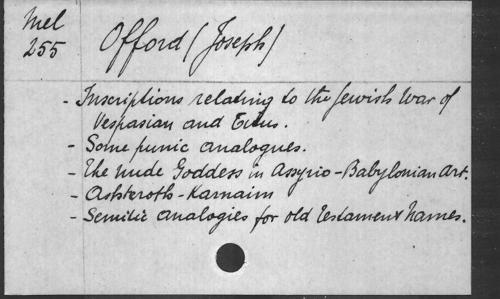 Mel
255
Offord (Joseph)
- Inscriptions relating to the Jewish War of
Vespasian and Titus.
- Some punic analogues.
- The nude Goddess in Assyrio-Babylonian Art.
- Ashteroth-Karnaim
- Semitic analogies for old Testament Names.